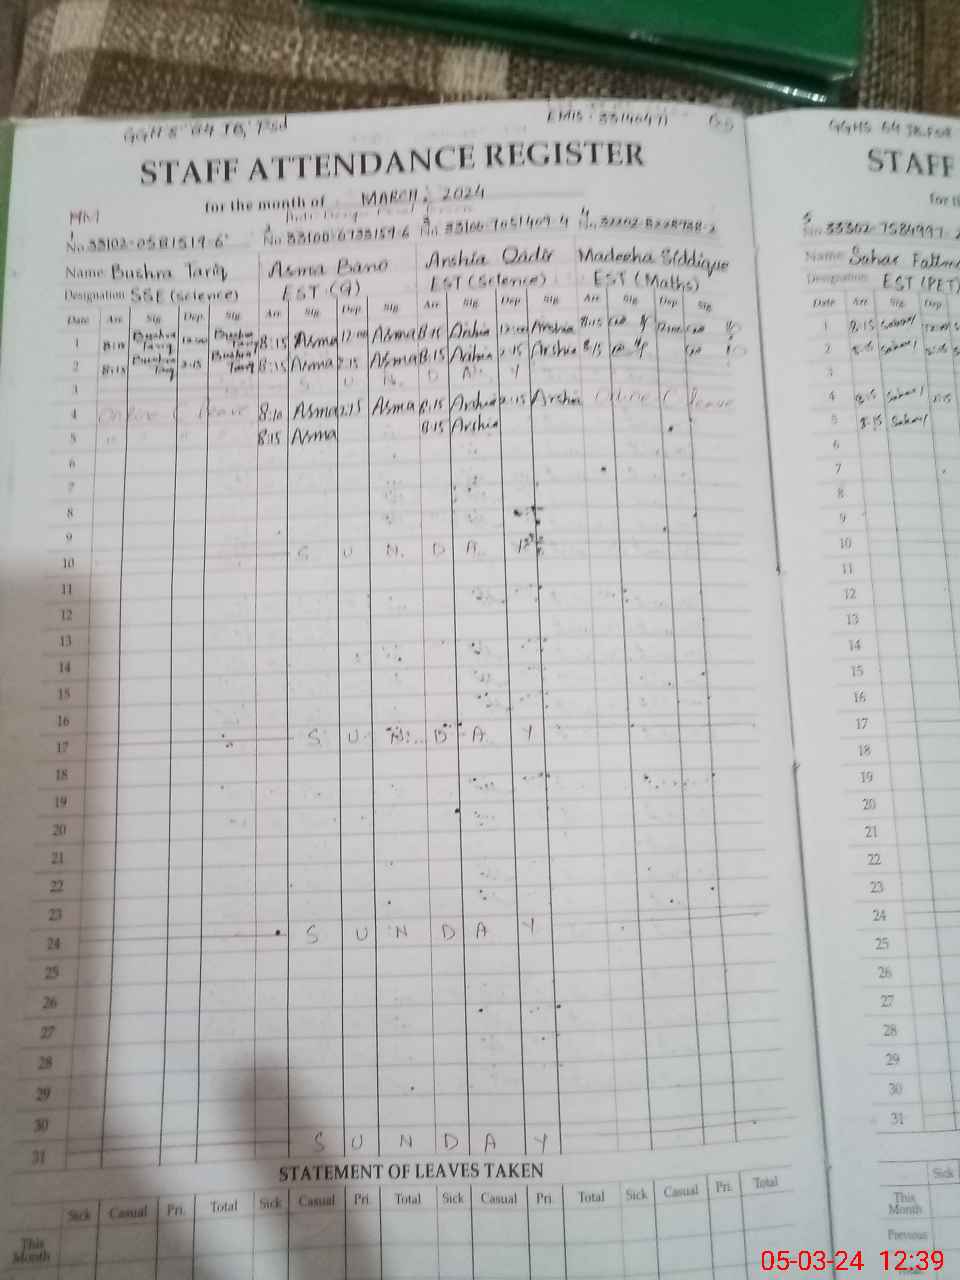 STAFF ATTENDANCE REGISTER
STAFF
for the month of MARCH, 2024
No. 33102-0581519-6
No. 33100-6733159-6
No. 33100-7051409-4
Name Bushra Tariq
Asma Bano
Arshia Qadir
Madeeha Siddique
Name
Designation SSE (Science)
EST (Science)
EST (Maths)
Designation EST (PET)
Date Arr. Sig. Dep. Sig. Arr. Sig. Dep. Sig. Arr. Sig. Dep. Sig. Arr. Sig. Dep. Sig.
Date Arr. Sig. Dep.
1 8:10 Bushra Tariq 12:00 Bushra Tariq 8:15 Asma 12:00 Asma 8:15 Arshia 12:00 Arshia 8:15 12:00
1 8:15
2 8:15 Bushra Tariq 2:15 Bushra Tariq 8:15 Asma 2:15 Asma 8:15 Arshia 2:15 Arshia 8:15
2
3 S U N D A Y
3
4 Online C leave 8:10 Asma 2:15 Asma 8:15 Arshia 2:15 Arshia Online C leave
4 8:15
5 " " " 8:15 Asma 8:15 Arshia
5 8:15
6
6
7
7
8
8
9
9
10 S U N D A Y
10
11
11
12
12
13
13
14
14
15
15
16
16
17 S U N D A Y
17
18
18
19
19
20
20
21
21
22
22
23
23
24 S U N D A Y
24
25
25
26
26
27
27
28
28
29
29
30
30
31 S U N D A Y
31
STATEMENT OF LEAVES TAKEN
Sick Casual Pri. Total Sick Casual Pri. Total Sick Casual Pri. Total Sick Casual Pri. Total
Sick
This Month
This Month
Previous
05-03-24 12:39